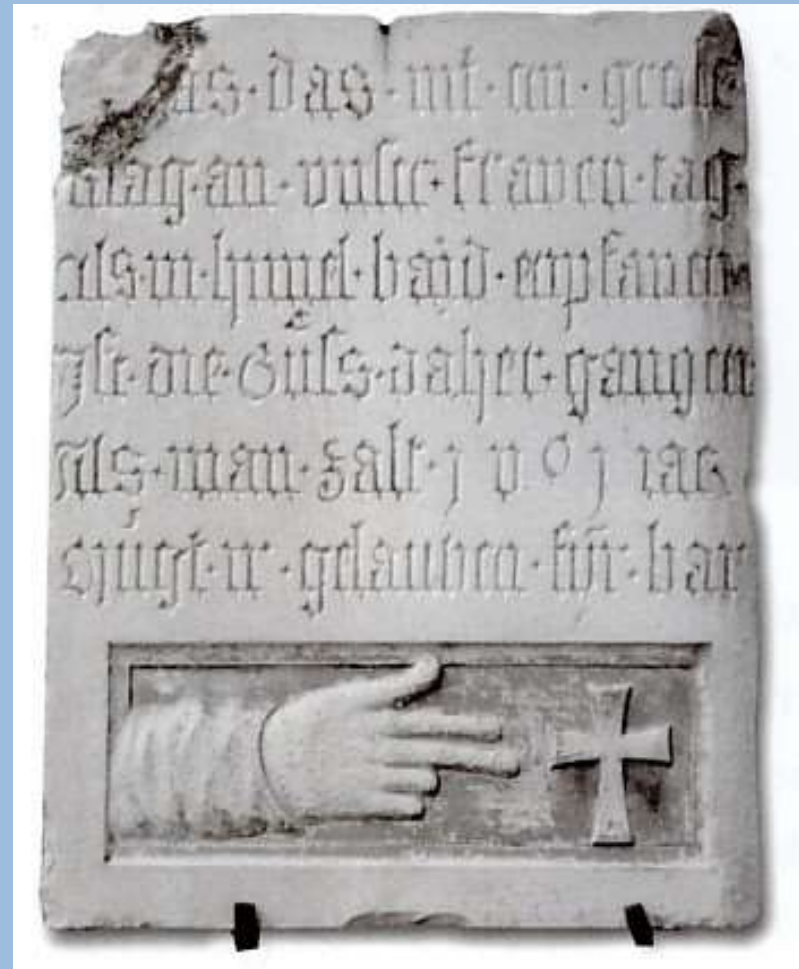 as · das · nit · ein · grosse ·
klag · an · vnser · fraven · tag ·
als · in · himel · bard · enpfangen
Jst · die · Güss · daher · gangen ·
Als · man · zalt · j v o j iar
Mügt · ir · gelauben · für · bar